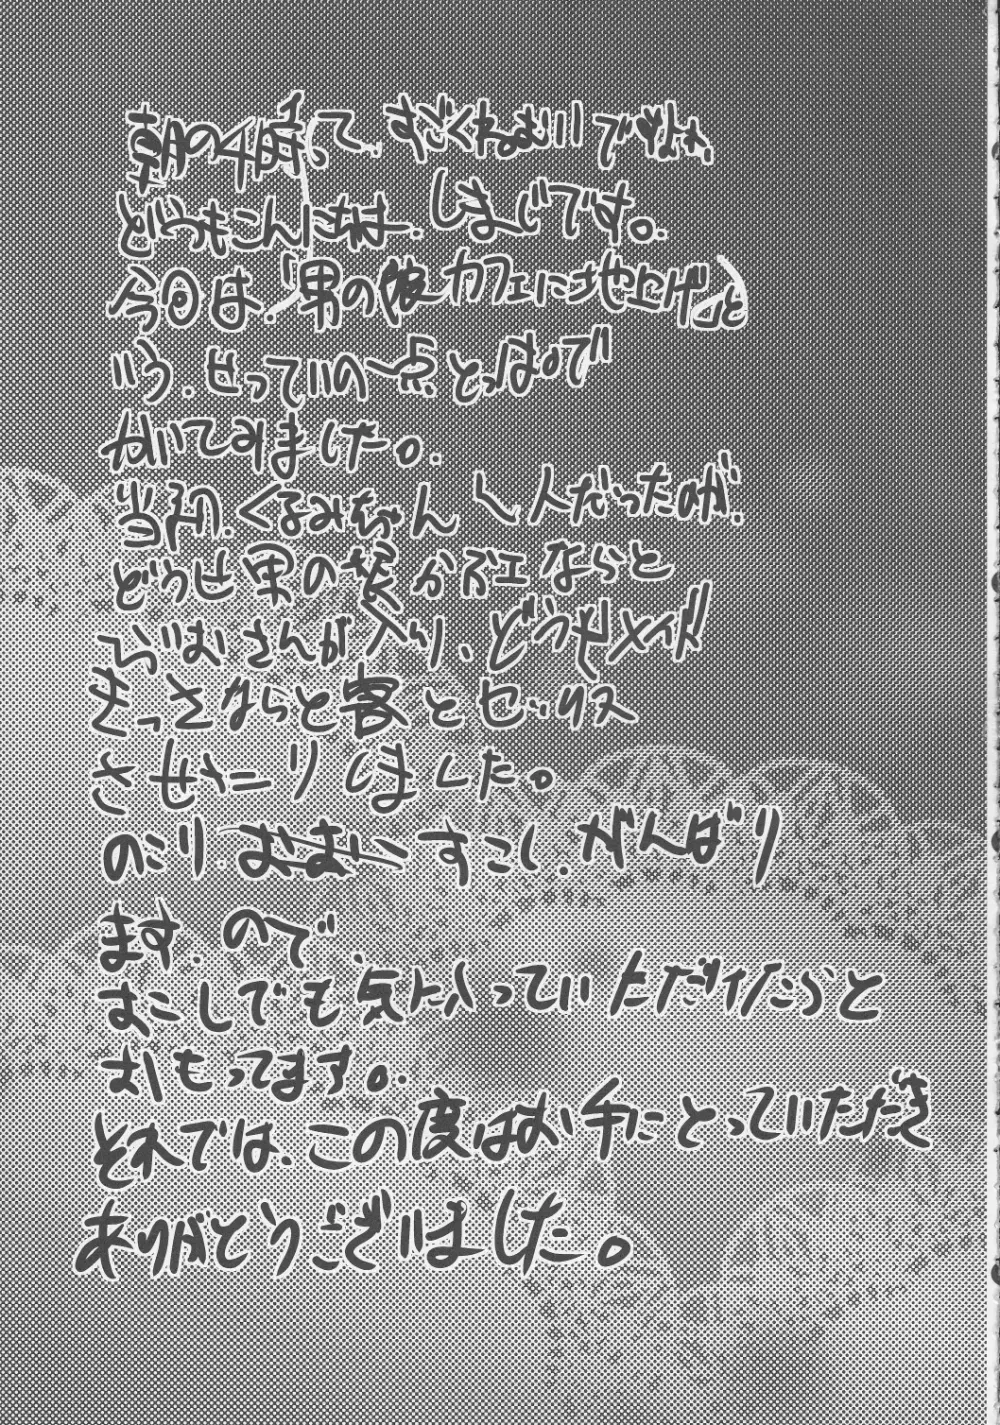 朝の4時って、すごくねむいですよね、
どうもこんにちは、しまじです。
今回は、「男の娘カフェに地上げ」と
いう、せっていの一点とっぱで
かいてみました。
当初、くるみちゃん1人だったのが、
どうせ男の娘かふぇならと
おさんが入り、どうせメイド
きっさならと客とセックス
させたりしました。
のこり、すこし、がんばり
ます。ので、
すこしでも気に入っていただけたらと
おもってます。
それでは、この度はお手にとっていただき
ありがとうございました。